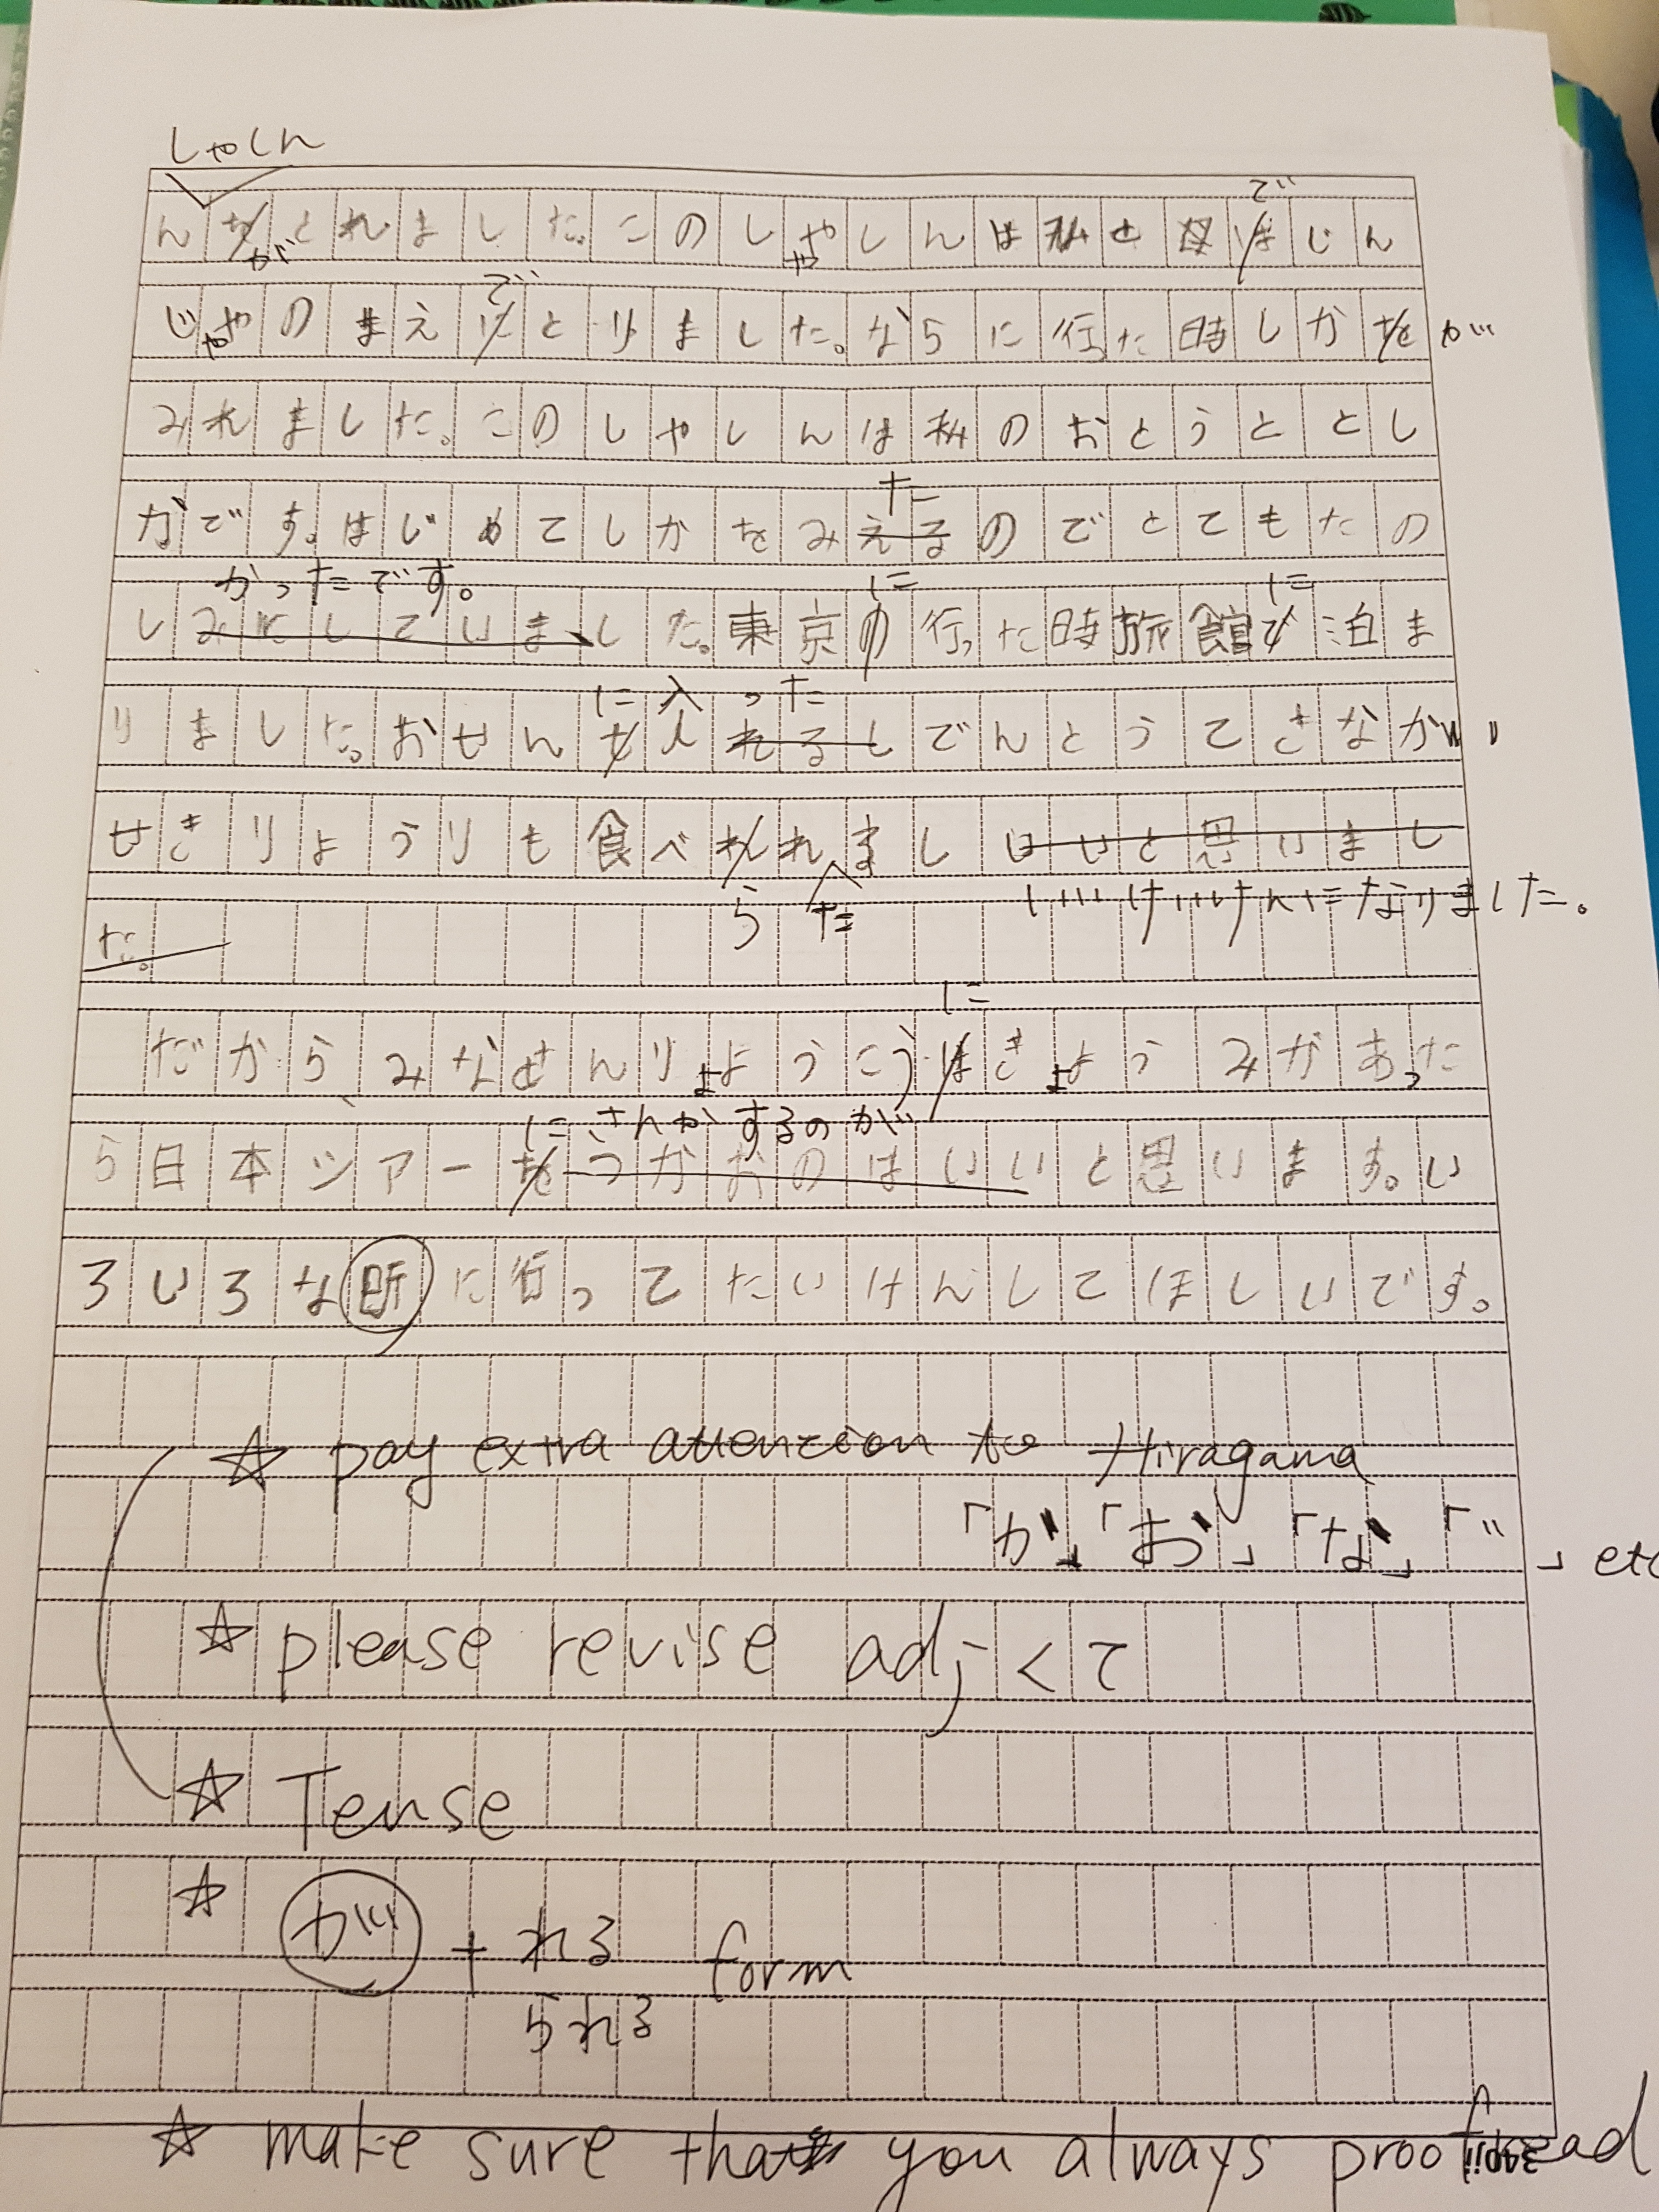 しゃしん
んをとれました。このしゃしんは私と母はじん
が
で
じゃのまえにとりました。ならに行った時しかを
で
が
みれました。このしゃしんは私のおとうととし
かです。はじめてしかをみえるのでとてもたの
た
しみにしていました。東京の行った時旅館で泊ま
かったです。
に
に
りました。おせんを入れるしでんとうてきなか
に入った
せきりょうりも食べれれまし はいと思いまし
ら
た
いいけいけんになりました。
た。
だからみなせんりょうこうはきょうみがあった
に
ら日本ツアーをつかおのはいいと思います。い
にさんかするのが
ろいろな所に行ってたいけんしてほしいです。
☆ pay extra attention to Hiragama
「か」「お」「な」「〃」etc
☆ please revise adj くて
☆ Tense
☆ が + れる form
られる
☆ make sure that you always proofread